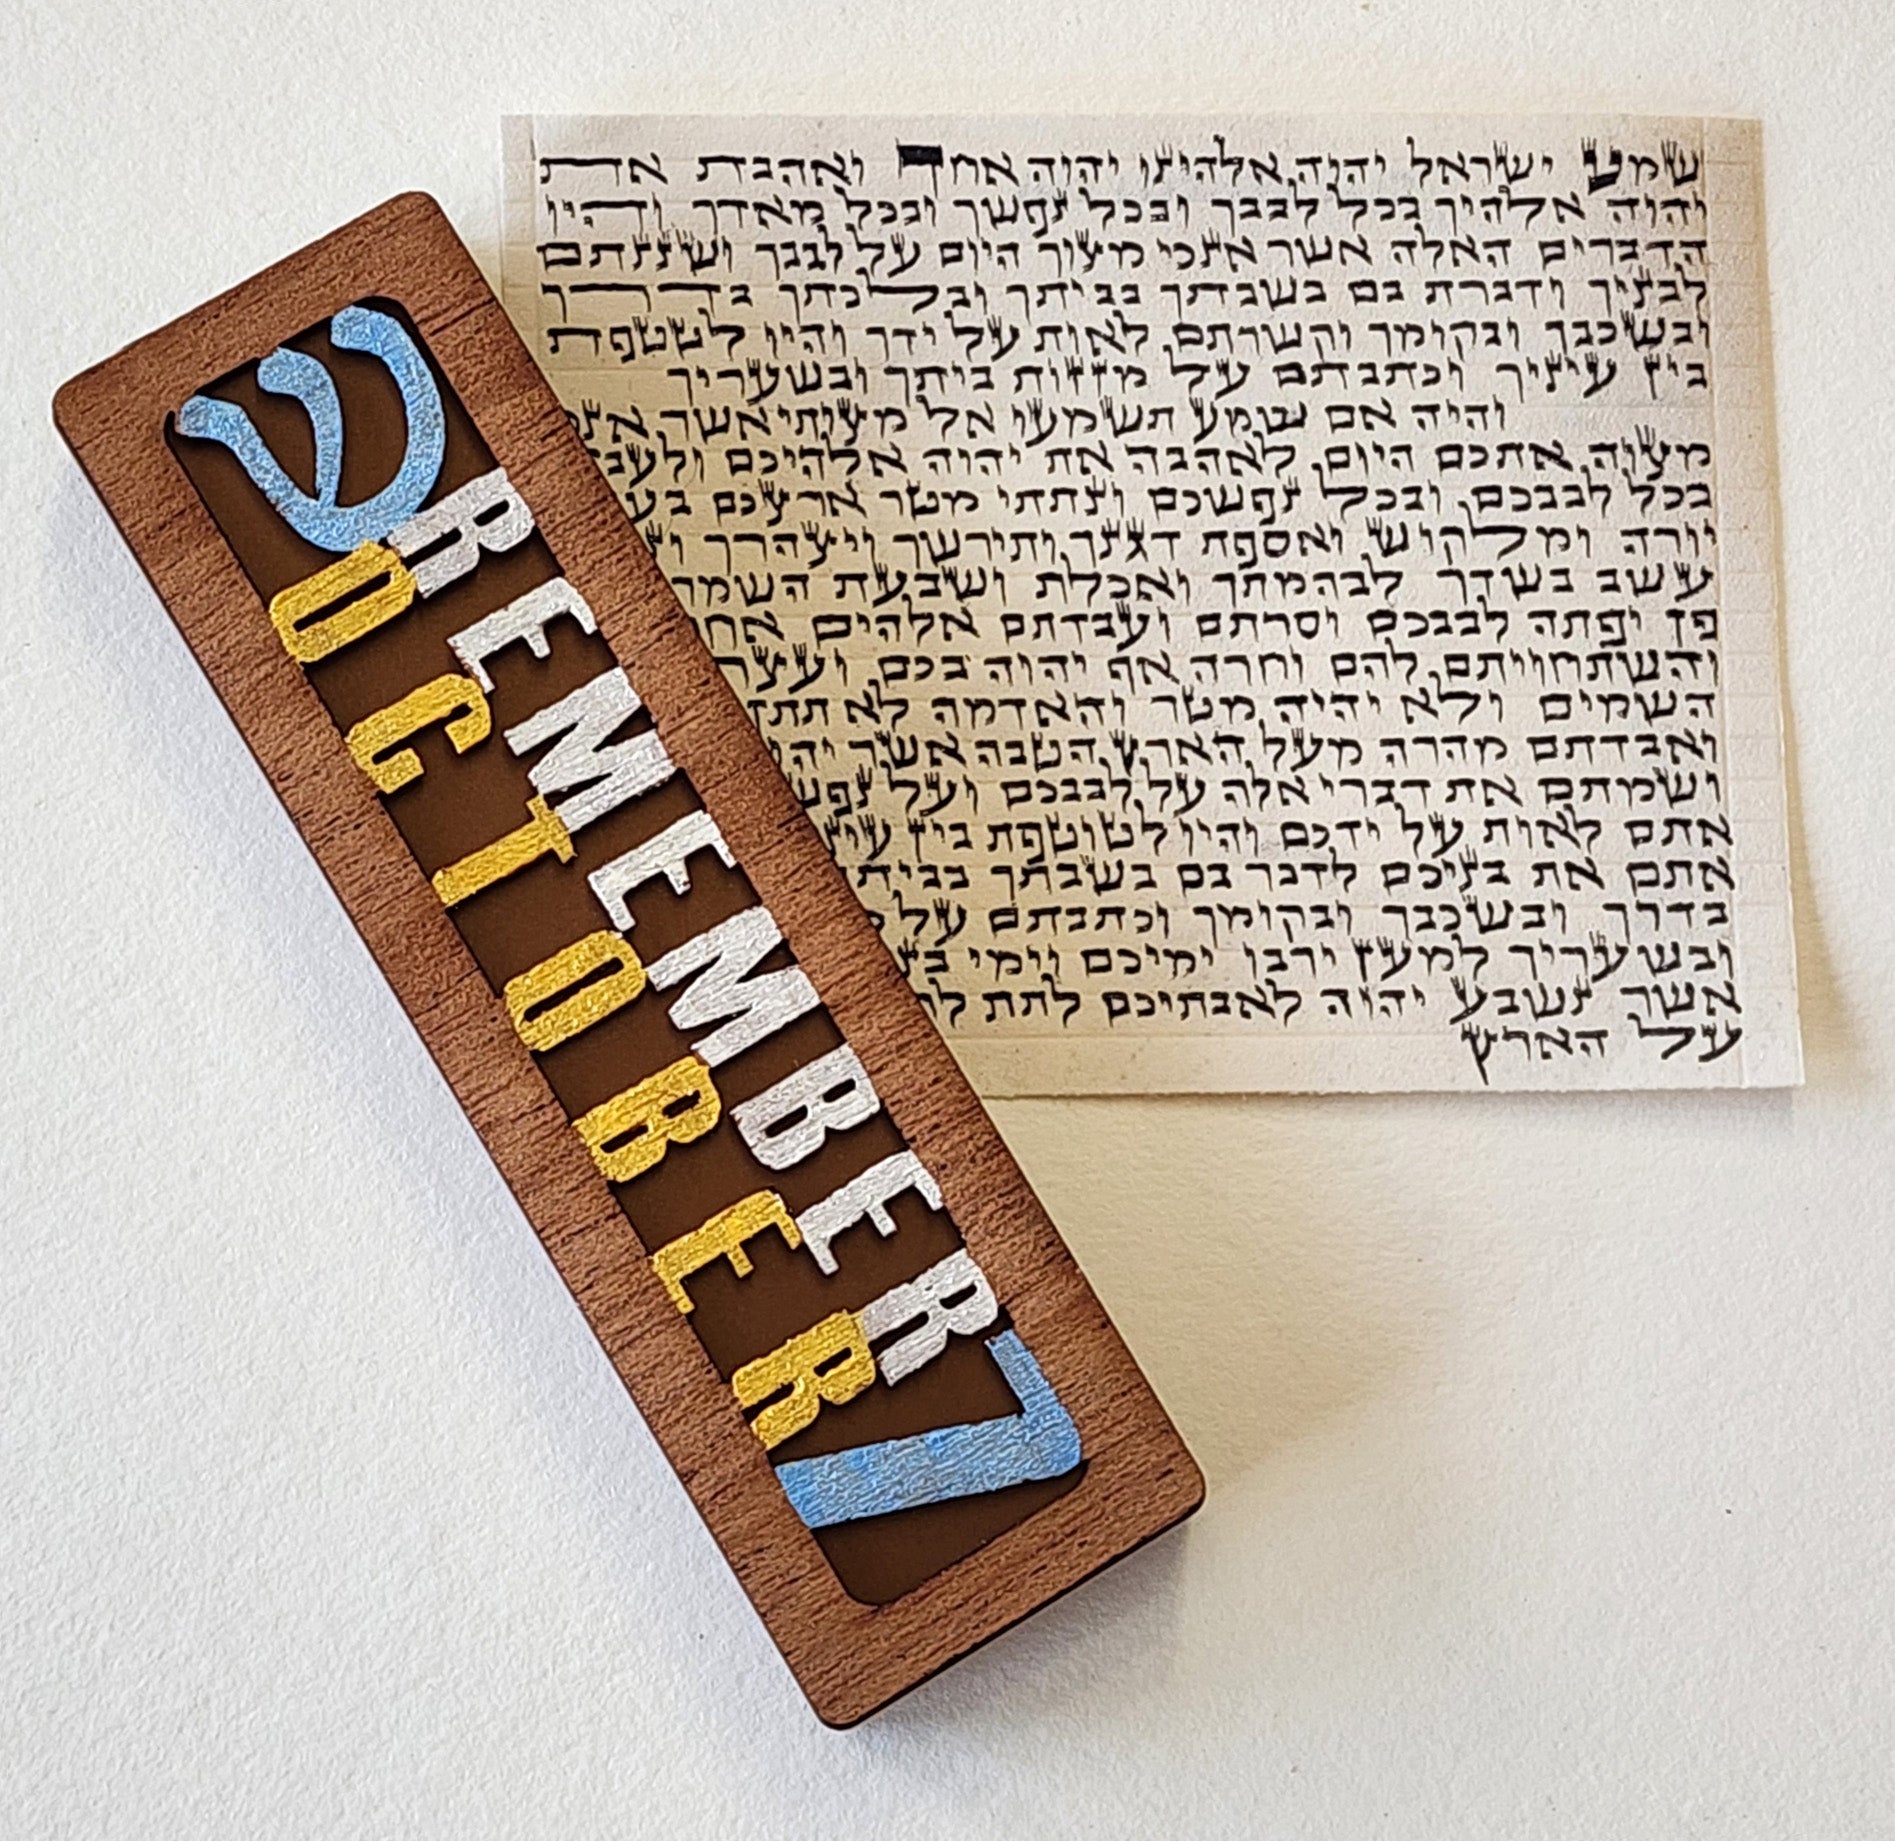 ש
REMEMBER
OCTOBER
7
שמע ישראל יהוה אלהינו יהוה אחד ואהבת את
יהוה אלהיך בכל לבבך ובכל נפשך ובכל מאדך והיו
הדברים האלה אשר אנכי מצוך היום על לבבך ושננתם
לבניך ודברת בם בשבתך בביתך ובלכתך בדרך
ובשכבך ובקומך וקשרתם לאות על ידך והיו לטטפת
בין עיניך וכתבתם על מזזות ביתך ובשעריך
והיה אם שמע תשמעו אל מצותי אשר
מצוה אתכם היום לאהבה את יהוה אלהיכם
בכל לבבכם ובכל נפשכם ונתתי מטר ארצכם
יורה ומלקוש ואספת דגנך ותירשך ויצהרך
עשב בשדך לבהמתך ואכלת ושבעת השמרו
פן יפתה לבבכם וסרתם ועבדתם אלהים
והשתחויתם להם וחרה אף יהוה בכם ועצר
השמים ולא יהיה מטר והאדמה לא תתן
ואבדתם מהרה מעל הארץ הטבה אשר
ושמתם את דברי אלה על לבבכם ועל
אתם לאות על ידכם והיו לטוטפת בין
אתם את בניכם לדבר בם בשבתך
בדרך ובשכבך ובקומך וכתבתם על
ובשעריך למען ירבו ימיכם וימי
אשר נשבע יהוה לאבתיכם לתת
על הארץ